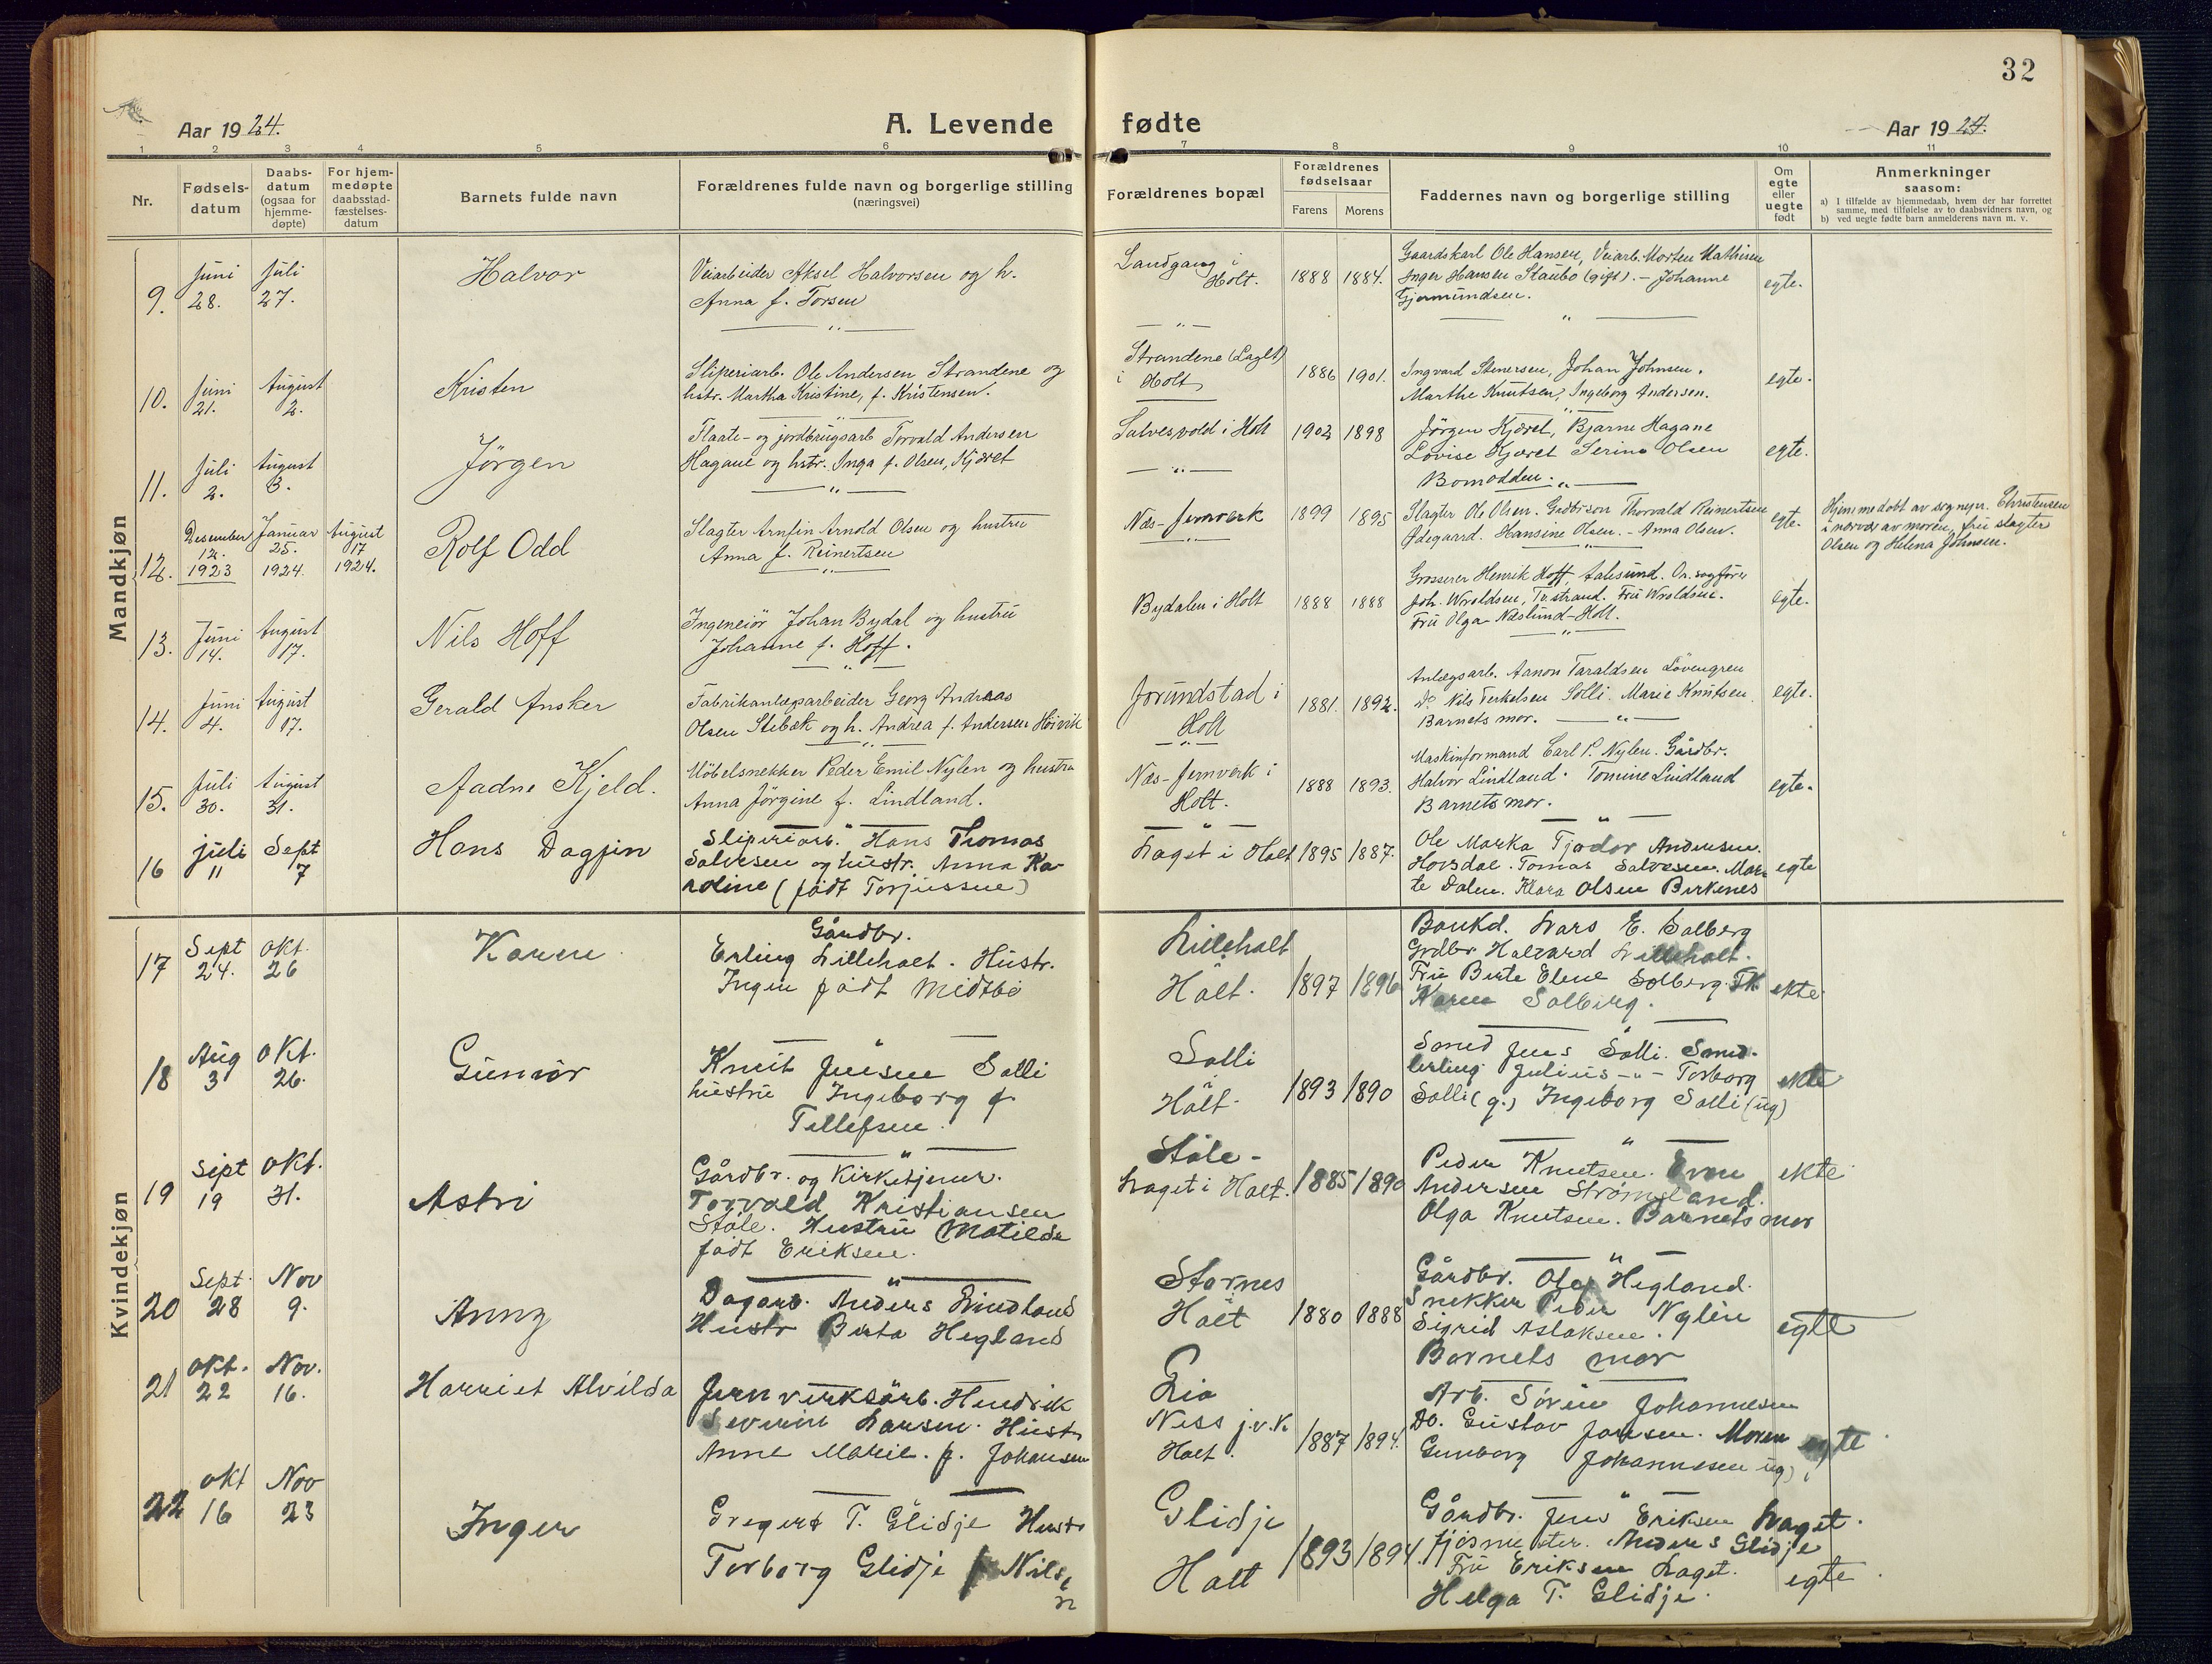 32
Aar 1924. A. Levende fødte Aar 1924.
1 2 3 4 5 6 7 8 9 10 11
Nr.
Fødsels-
datum
Daabs-
datum
(ogsaa for
hjemme-
døpte)
For hjem-
medøpte
daabsstad-
fæstelses-
datum
Barnets fulde navn
Forældrenes fulde navn og borgerlige stilling
(næringsvei)
Forældrenes bopæl
Forældrenes
fødselsaar
Farens Morens
Faddernes navn og borgerlige stilling
Om
egte
eller
uegte
født
Anmerkninger
saasom:
a) I tilfælde av hjemmedaab, hvem der har forrettet
samme, med tilføielse av to daabsvidners navn, og
b) ved uegte fødte barn anmelderens navn m. v.
Mandkjøn
9.
Juni
28.
Juli
27.
Halvor
Veiarbeider Aksel Halvorsen og h.
Anna f. Torsen
Landgang i
Holt.
1888 1884.
Gaardskarl Ole Hansen, Veiarb. Morten Mathisen
Inger Hansen Staubo (gift). - Johanne
Gjermundsen.
egte.
10.
Juni
21.
August
2.
Kristen
Sliperiarb. Ole Andersen Strandene og
hstr. Martha Kristine, f. Kristensen.
Strandene (Laget)
i Holt
1886 1901.
Ingvard Stenersen, Johan Johnsen.
Marthe Knutsen, Ingeborg Andersen.
egte.
11.
Juli
2.
August
3.
Jörgen
Flaate- og jordbrugsarb Torvald Andersen
Hagane og hstr. Inga f. Olsen, Kjæret
Salvesvold i Holt
1902 1898
Jörgen Kjæret, Bjarne Hagane
Lovise Kjæret Serine Olsen
Bomodden.
egte.
12.
Desember
12.
1923
Januar
25.
1924.
August
17
1924.
Rolf Odd
Slagter Arnfin Arnold Olsen og hustru
Anna f. Reinertsen
Næs-Jernverk
1899 1895
Slagter Ole Olsen. Thorvald Reinertsen
Ødegaard. Hansine Olsen. - Anna Olsen.
egte.
Hjemmedøbt av sognepr. Christensen
i nærvær av moren, fru slagter
Olsen og Helena Johnsen.
13.
Juni
14.
August
17.
Nils Hoff
Ingeneiör Johan Bydal og hustru
Johanne f. Hoff.
Bydalen i Holt
1888 1888
Grosserer Henrik Hoff, Aalesund. Or. sagfører
Joh. Wroldsen, Tv.strand. Fru Wroldsen.
Fru Olga Næslund-Holt.
egte.
14.
Juni
4.
August
17.
Gerald Ansker
Fabrikanlægsarbeider Georg Andreas
Olsen Stibæk og h. Andrea f. Andersen Høivik
Jorundstad i
Holt
1881. 1892.
Anlægsarb. Aanon Taraldsen Lövengren
Do Nils Terkelsen Solli. Marie Knutsen.
Barnets mor.
egte.
15.
Juli
30.
August
31.
Aadne Kjeld.
Möbelsnekker Peder Emil Nylen og hustru
Anna Jörgine f. Lindland.
Næs-Jernverk i
Holt.
1888 1893.
Maskinformand Carl P. Nylen. Gårdbr.
Halvor Lindland. Tomine Lindland
Barnets mor.
egte.
16
juli
11
Sept
7
Hans Dagfin
Sliperiarb. Hans Thomas
Salvesen og hustr. Anna Ka-
roline (født Torjussen)
Laget i Holt
1895 1887.
Ole Marka Tjodor Andersen.
Hovdal. Tomas Salvesen. Mar-
te Dalen. Klara Olsen Birkenes
egte
Kvindekjøn
17
Sept
24.
Okt.
26
Karen
Gårdbr.
Erling Lilleholt. Hustr.
Ingen født Midtbö
Lilleholt
Holt.
1897 1896
Bankd. Lars E. Solberg
Grdbr. Halvard Lilleholt.
Fru Birte Elene Solberg. Fk.
Karen Solberg.
ekte
18
Aug
3
Okt.
26.
Gunvor
Knut Jensen Solli
hustru Ingeborg f.
Tellefsen.
Solli
Holt.
1893 1890
Smed Jens Solli. Smed-
lerling Julius -"- Torborg
Solli (g.) Ingeborg Solli (ug)
ekte
19
Sept
19
Okt.
31.
Astri
Gårdbr. og Kirketjener.
Torvald Kristiansen
Ståle. Hustru Matilde
født Eriksen.
Ståle-
Laget i Holt.
1885 1890
Peder Knutsen. Even
Andersen Strømsland.
Olga Knutsen. Barnets mor
ekte
20
Sept.
28
Nov
9.
Anny
Dagarb. Anders Lindland
Hustr Birta Hegland
Stornes
Holt
1880 1888
Gårdbr. Olaf Hegland.
Snekker Peder Nylén
Sigrid Aslaksen.
Barnets mor
egte
21
Okt.
22
Nov.
16.
Harriet Alvilda
Jernverksarb. Hendrik
Severin Larsen. Hustr
Anne Marie. f. Johansen
Lia
Ness j.v.k
Holt.
1887 1894.
Arb. Sören Johannesen
Do. Gustav Jansen. Moren
Gunborg Johannesen ug)
egte
22
Okt
16
Nov
23
Inger
Gregert T. Glidje Hustr
Torborg Glidje f. Nilse
n
Glidje
Holt
1893 1894.
Gårdbr. Jens Eriksen Laget.
Anders Glidje
Fru Eriksen Laget.
Helga T. Glidje.
egte